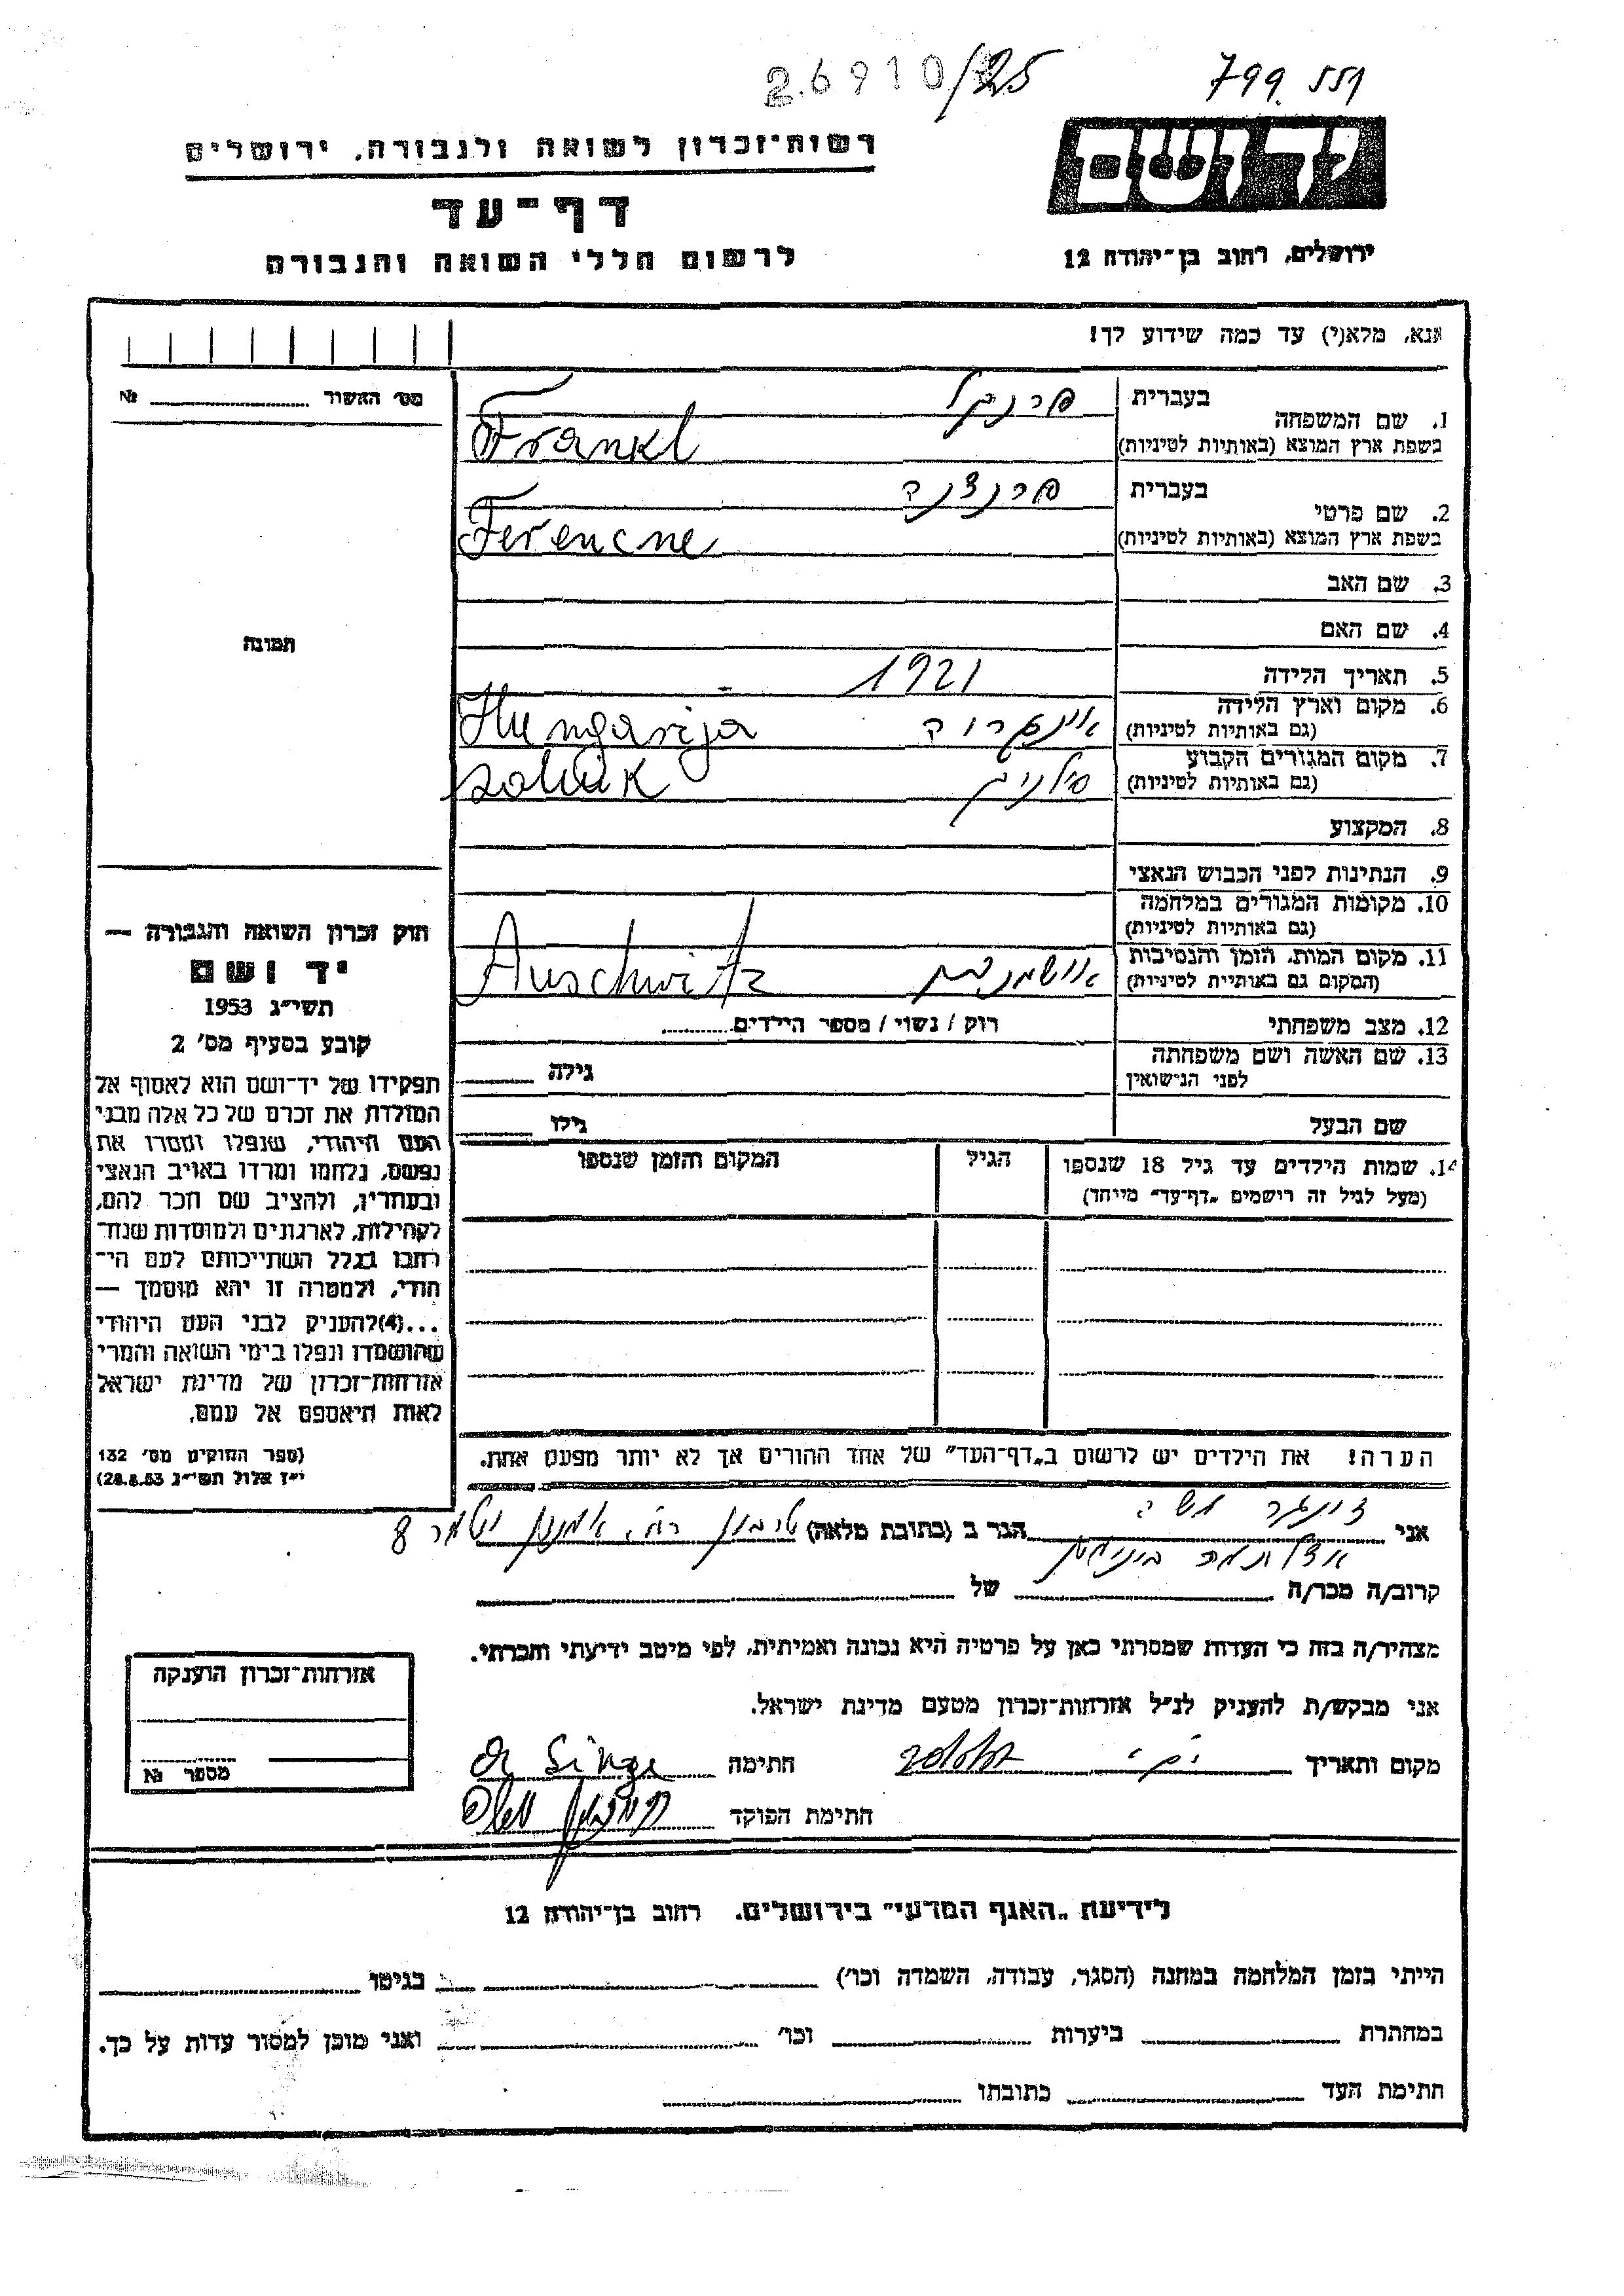 26910/25
799551
יד ושם
ירושלים, רחוב בן-יהודה 12
רשות-זכרון לשואה ולגבורה, ירושלים
דף-עד
לרשום חללי השואה והגבורה
אנא, מלא(י) עד כמה שידוע לך!
מס' האשור № 
1. שם המשפחה
בעברית פרנקל
בשפת ארץ המוצא (באותיות לטיניות) Frankl
2. שם פרטי
בעברית פרנצנה
בשפת ארץ המוצא (באותיות לטיניות) Ferencne
3. שם האב
4. שם האם
5. תאריך הלידה 1921
6. מקום וארץ הלידה
(גם באותיות לטיניות) Hungarija
7. מקום המגורים הקבוע
(גם באותיות לטיניות)
8. המקצוע
9. הנתינות לפני הכבוש הנאצי
10. מקומות המגורים במלחמה
(גם באותיות לטיניות)
11. מקום המות, הזמן והנסיבות
(המקום גם באותיות לטיניות) Auschwitz
12. מצב משפחתי רוק / נשוי / מספר הילדים
13. שם האשה ושם משפחתה
לפני הנישואין גילה
שם הבעל גילו
14. שמות הילדים עד גיל 18 שנספו הגיל המקום והזמן שנספו
(מעל לגיל זה רישמים „דף-עד" מייחד)
הערה! את הילדים יש לרשום ב„דף-העד" של אחד ההורים אך לא יותר מפעם אחת.
תמונה
חוק זכרון השואה והגבורה —
יד ושם
תשי"ג 1953
קובע בסעיף מס' 2
תפקידו של יד-ושם הוא לאסוף אל
המולדת את זכרם של כל אלה מבני
העם היהודי, שנפלו ומסרו את
נפשם, נלחמו ומרדו באויב הנאצי
ובעוזריו, ולהציב שם וזכר להם,
לקהילות, לארגונים ולמוסדות שנח-
רבו בגלל השתייכותם לעם הי-
הודי, ולמטרה זו יהא מוסמך —
...(4)להעניק לבני העם היהודי
שהושמדו ונפלו בימי השואה והמרי
אזרחות-זכרון של מדינת ישראל
לאות היאספם אל עמם.
(ספר החוקים מס' 132
י"ז אלול תשי"ג 28.8.53)
אני הגר ב (כתובת מלאה) טבעון
קרוב/ה מכר/ה של
מצהיר/ה בזה כי העדות שמסרתי כאן על פרטיה היא נכונה ואמיתית, לפי מיטב ידיעתי והכרתי.
אני מבקש/ת להעניק לנ"ל אזרחות-זכרון מטעם מדינת ישראל.
מקום ותאריך חתימה
חתימת הפוקד
אזרחות-זכרון הוענקה
מספר №
לידיעת „האגף המדעי" בירושלים, רחוב בן-יהודה 12
הייתי בזמן המלחמה במחנה (הסגר, עבודה, השמדה וכו') בגיטו
במחתרת ביערות וכו' ואני מוכן למסור עדות על כך.
חתימת העד כתובתו